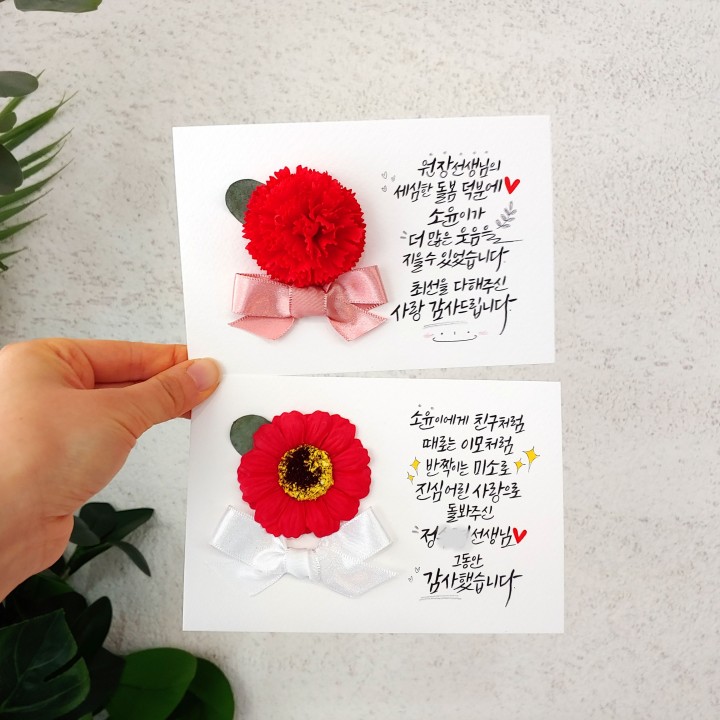 원장선생님의
세심한 돌봄 덕분에
소윤이가
더 많은 웃음을
지을 수 있었습니다
최선을 다해주신
사랑 감사드립니다
소윤이에게 친구처럼
때로는 이모처럼
반짝이는 미소로
진심어린 사랑으로
돌봐주신
정 선생님
그동안
감사했습니다